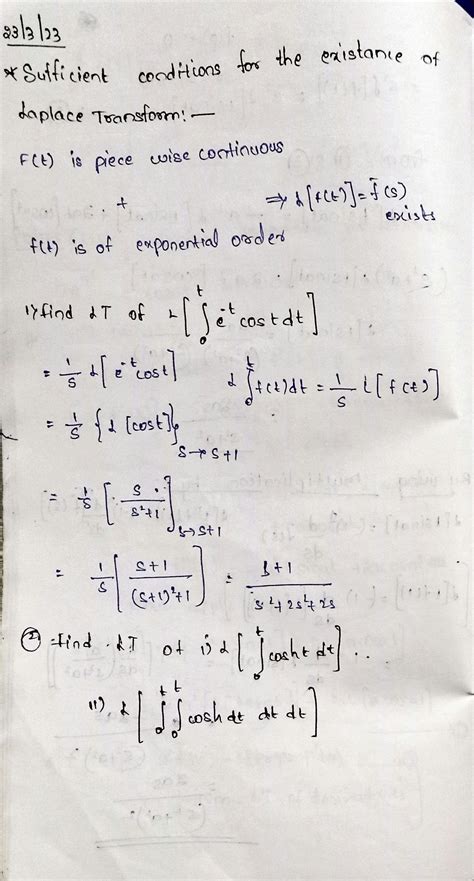 23/3/23
* Sufficient conditions for the existance of
Laplace Transform: —
F(t) is piece wise continuous
+ ⇒ L[f(t)] = f̄(s) exists
f(t) is of exponential order
1) find LT of L[∫₀ᵗ e⁻ᵗ cost dt]
= 1/s L[e⁻ᵗcost] L∫₀ᵗ f(t)dt = 1/s L[f(t)]
= 1/s {L[cost]} s→s+1
= 1/s [s/s²+1] s→s+1
= 1/s [s+1/(s+1)²+1] = s+1/s³+2s²+2s
② find LT of i) L[∫₀ᵗ cosht dt] ..
ii) L[∫₀ᵗ∫₀ᵗ cosh dt dt dt]